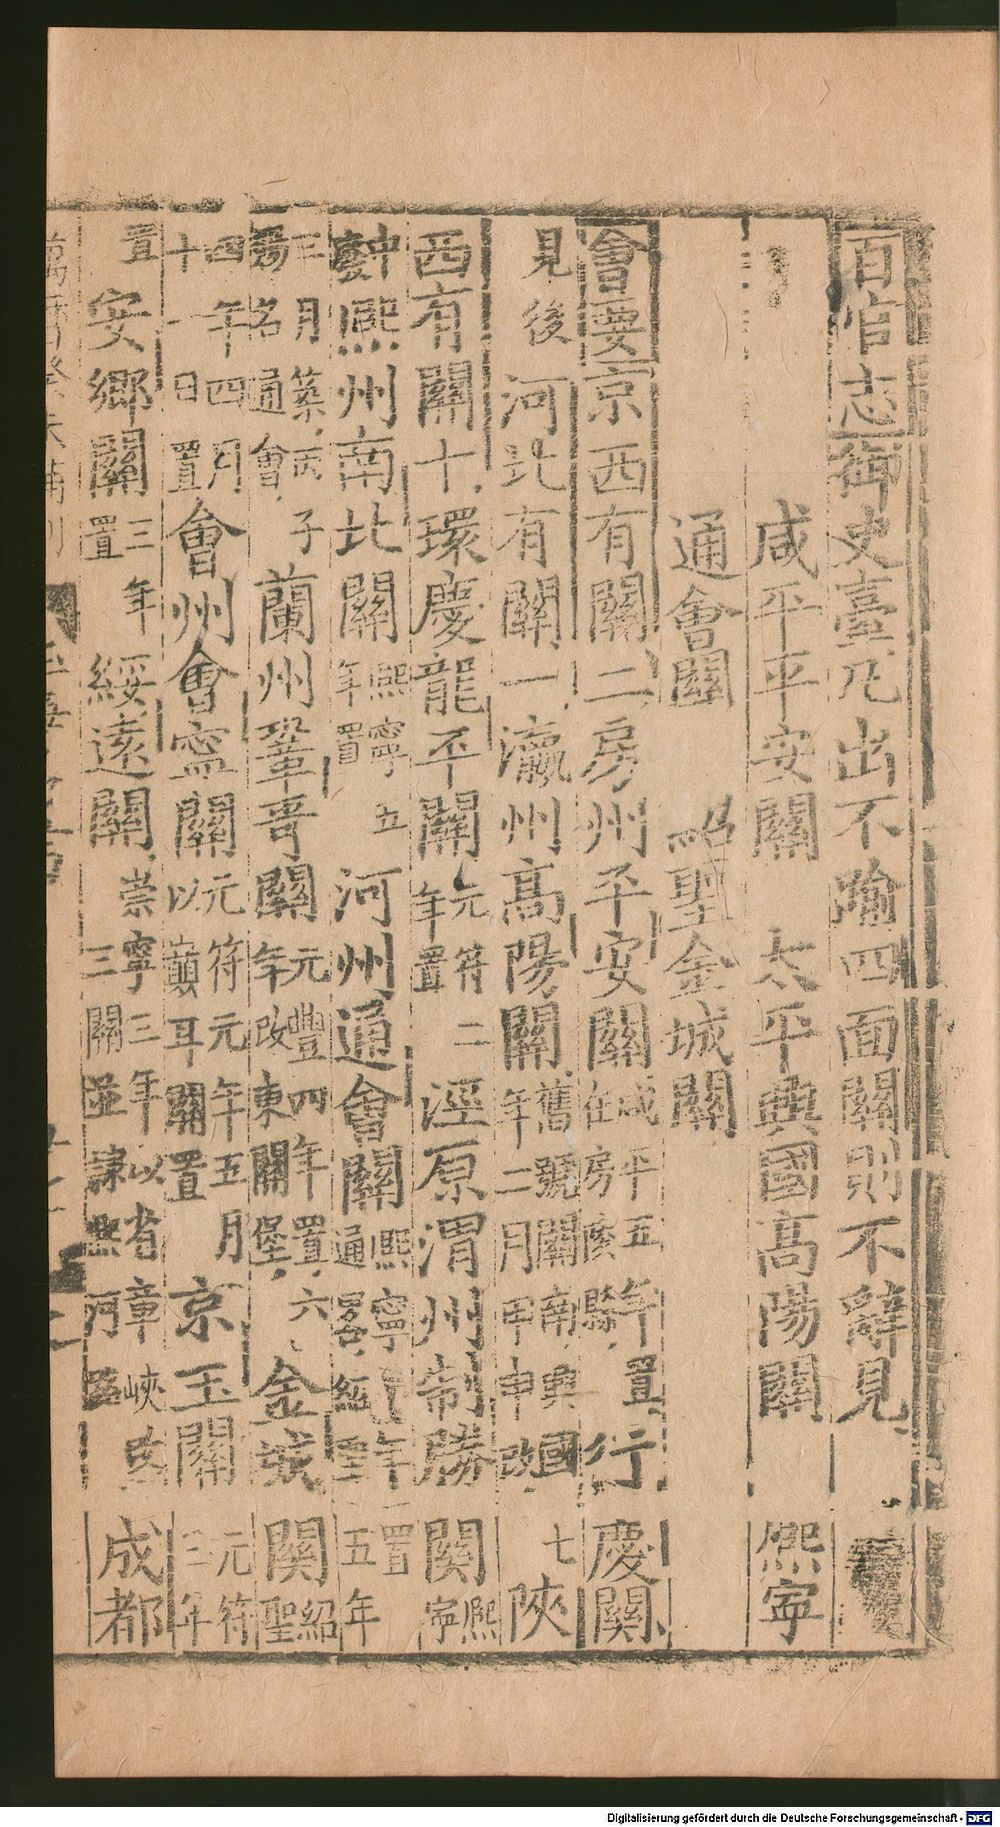 百官志御史臺凡出不踰四面關則不辭見
咸平平安關 太平興國高陽關 熙寧
通會關 紹聖金城關
會要京西有關二房州平安關咸平五年置在房陵縣行慶關
見後河北有關一瀛州高陽關舊號關南興國七年二月甲申改陝
西有關十環慶龍平關元符二年置涇原渭州制勝關熙寧
中廢熙州南北關熙寧五年置河州通會關熙寧年置五年
三月築丙子賜名通會蘭州鞏哥關元豐四年置六年改東關堡金城關紹聖
四年四月十一日置會州會寧關元符元年五月以顛耳關置京玉關元符三年
置安鄉關三年置綏遠關崇寧三年以省章峽置三關並隸熙河路成都
Digitalisierung gefördert durch die Deutsche Forschungsgemeinschaft - DFG